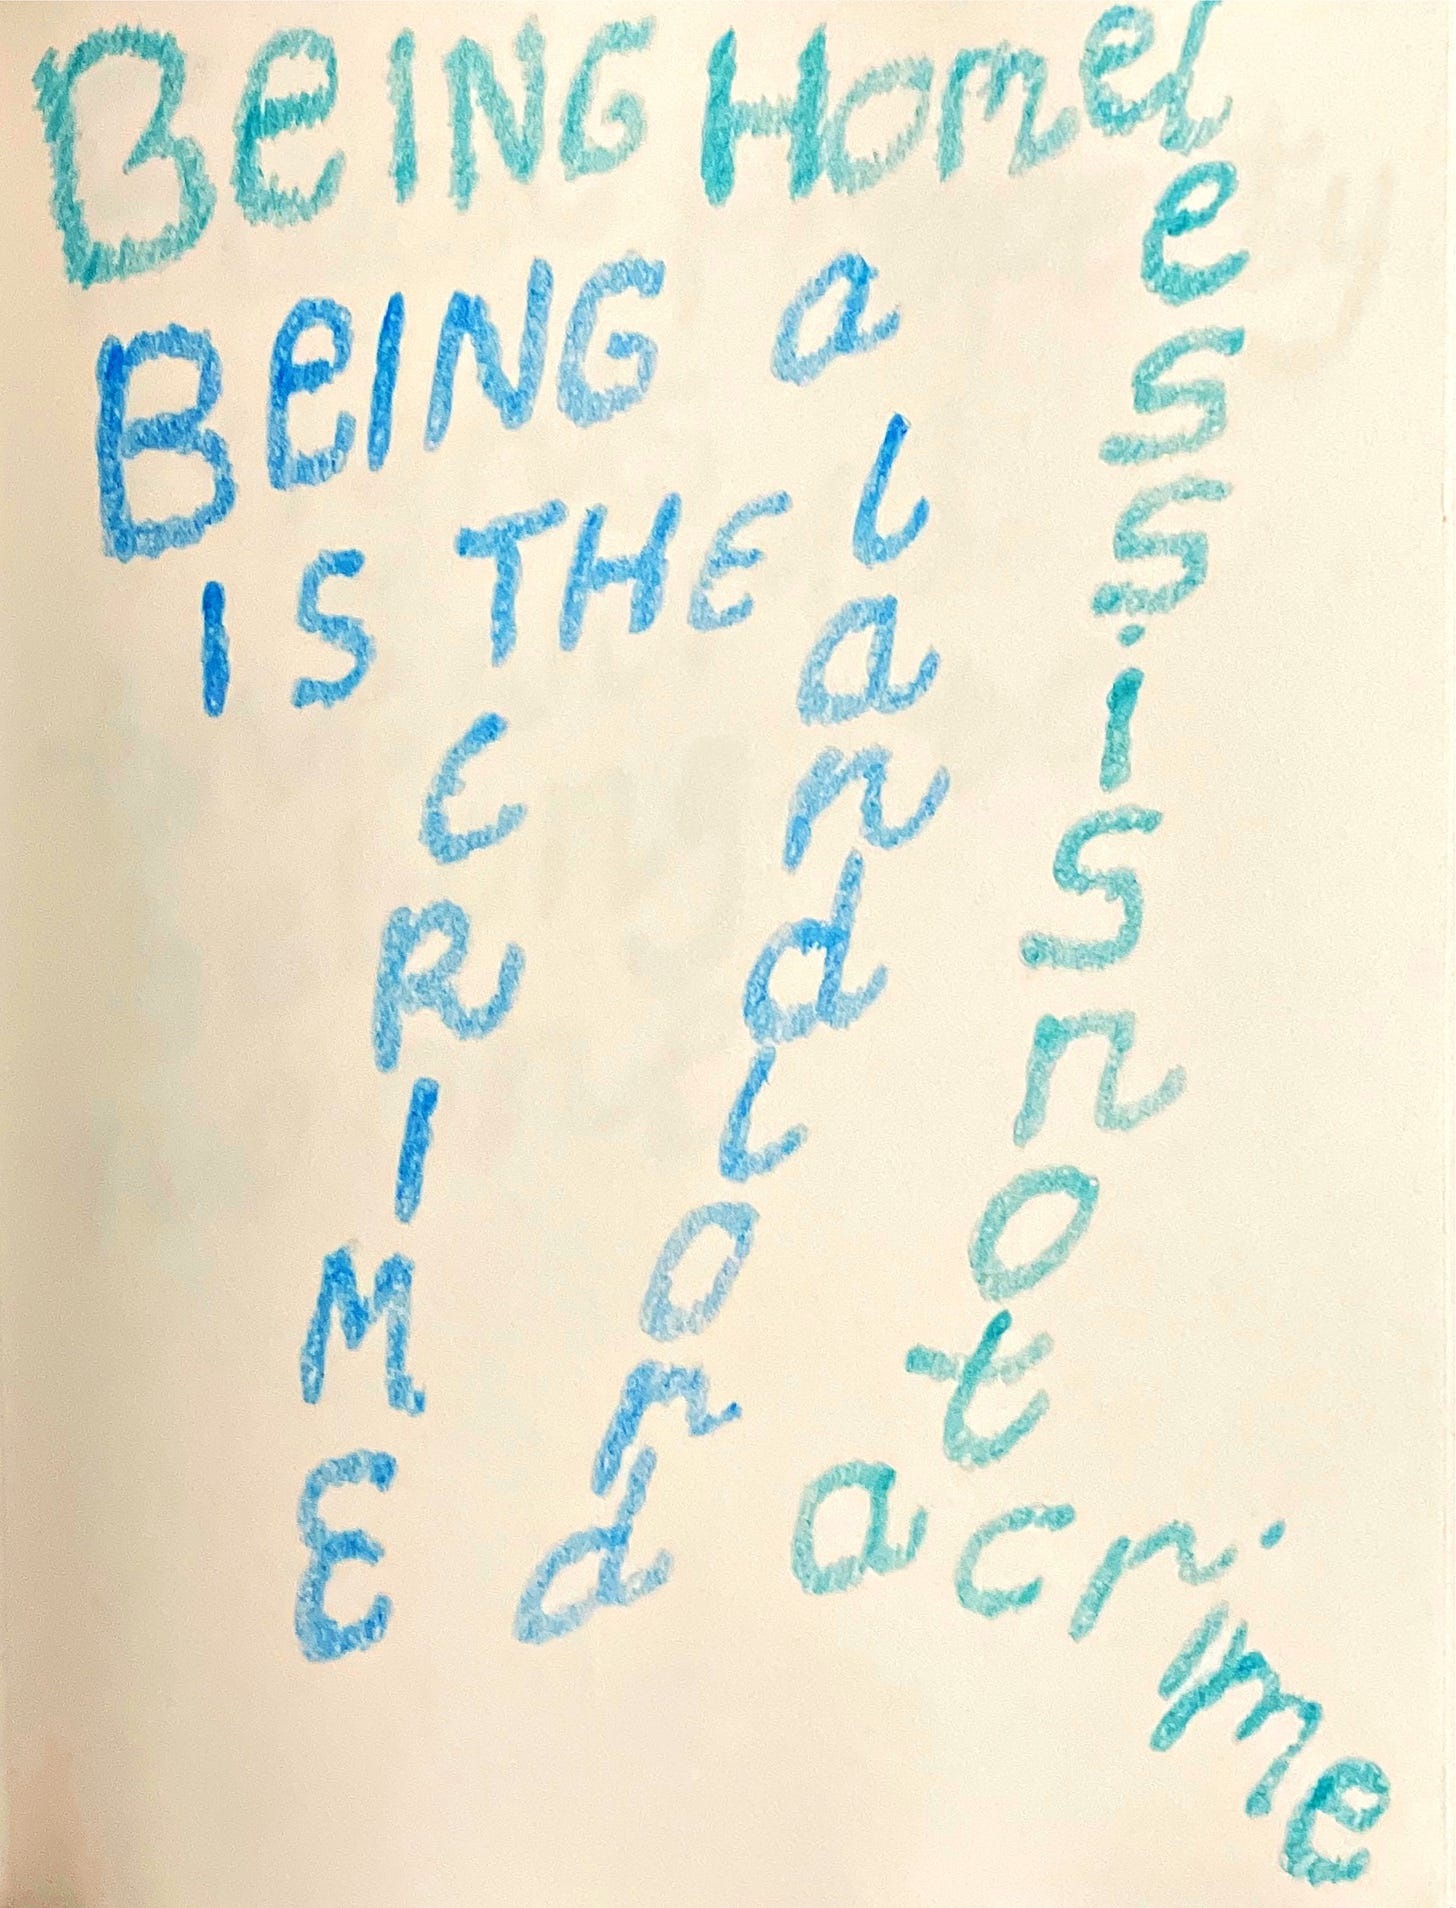 BeING Homeless is not a crime
BeING a landlord
IS THE CRIME